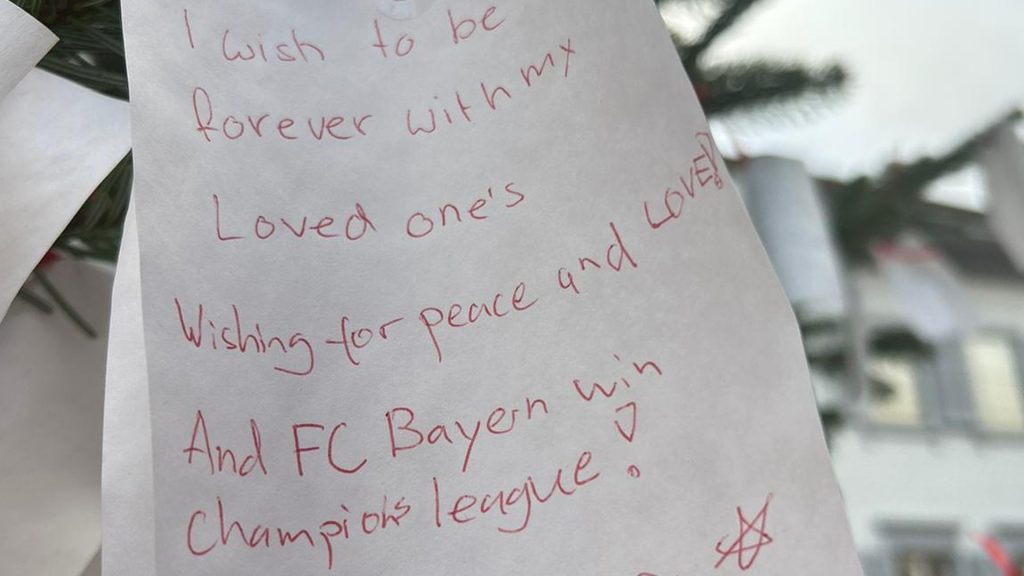 I wish to be
forever with my
Loved one's
Wishing for peace and LOVE!
And FC Bayern win
Champions league!